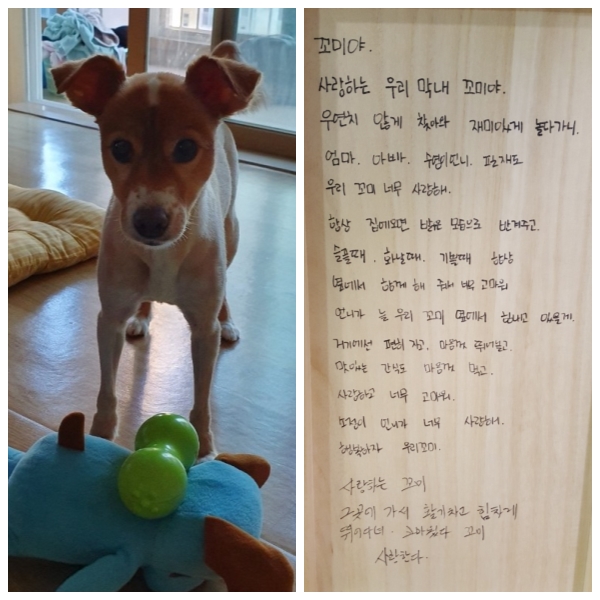 꼬미야.
사랑하는 우리 막내 꼬미야.
우연치 않게 찾아와 재미있게 놀다가니.
엄마. 아빠. 언니.
우리 꼬미 너무 사랑해.
항상 집에오면 밝은 모습으로 반겨주고.
슬플때. 화날때. 기쁠때 항상
옆에서 함께 해 줘서 고마워
언니가 늘 우리 꼬미 옆에서 있을게.
거기에선 편히 자고. 마음껏 뛰어놀고.
맛있는 간식도 마음껏 먹고.
사랑하고 너무 고마워.
언니가 너무 사랑해.
행복하자 우리꼬미.
사랑하는 꼬미
그곳에 가서 활기차고 힘차게
뛰어다녀. 꼬미
사랑한다.